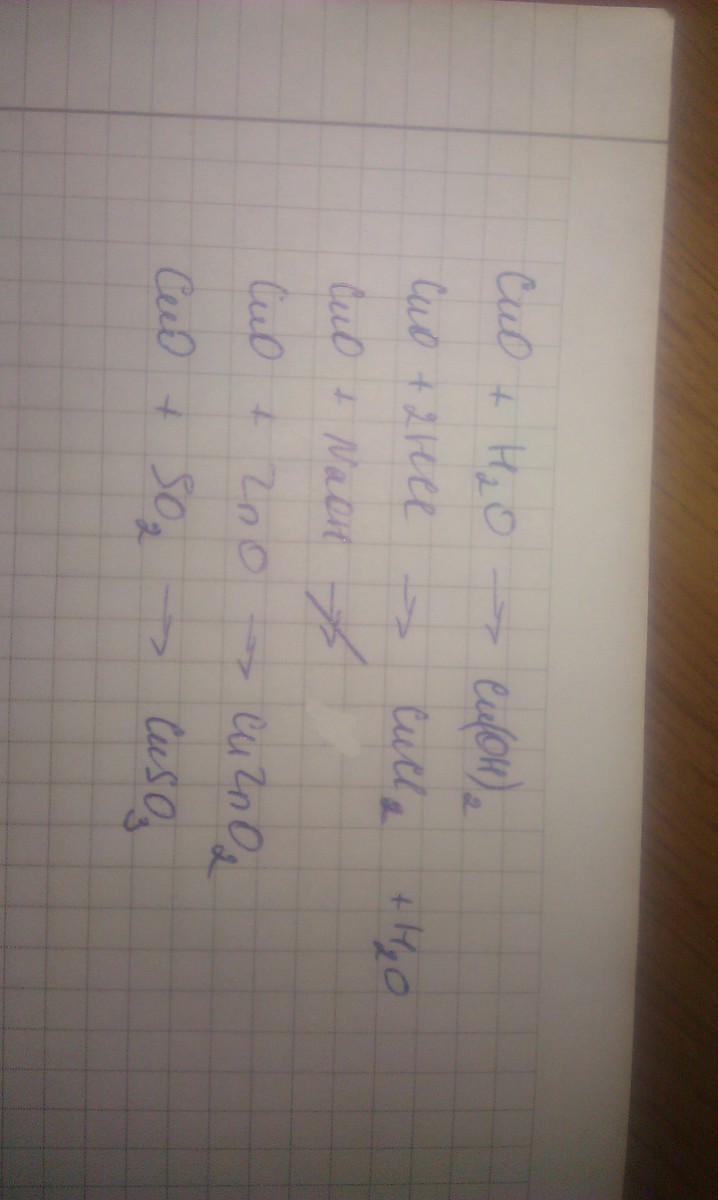 CuO + H₂O → Cu(OH)₂
CuO + 2HCl → CuCl₂ + H₂O
CuO + NaOH ↛
CuO + ZnO → CuZnO₂
CuO + SO₂ → CuSO₃